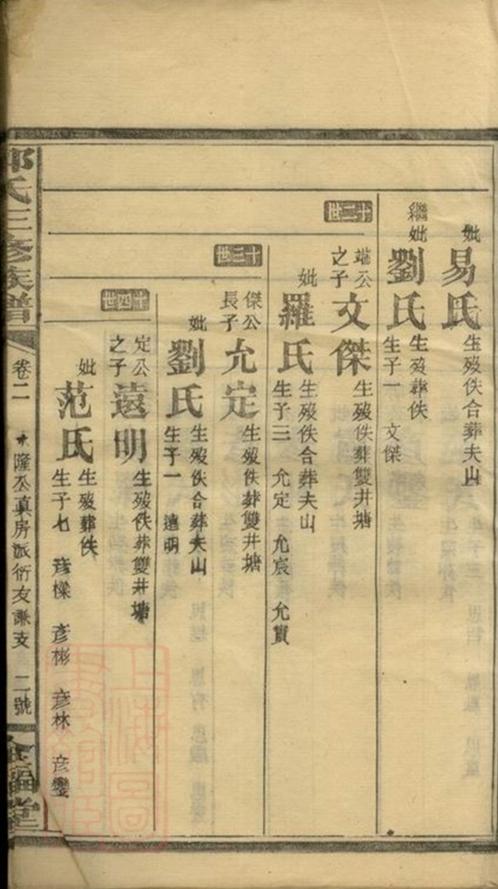 妣易氏 生殁佚合葬夫山
繼妣劉氏 生殁葬佚
生子一 文傑
十二世
端公之子文傑 生殁佚葬雙井塘
妣羅氏 生殁佚合葬夫山
生子三 允定 允宸 允實
十三世
傑公長子允定 生殁佚葬雙井塘
妣劉氏 生殁佚合葬夫山
生子一 遠明
十四世
定公之子遠明 生殁佚葬雙井塘
妣范氏 生殁葬佚
生子七 彥樑 彥彬 彥林 彥鑾
氏三修族譜
卷二
隆公真房派衍友謙支 二號
堂